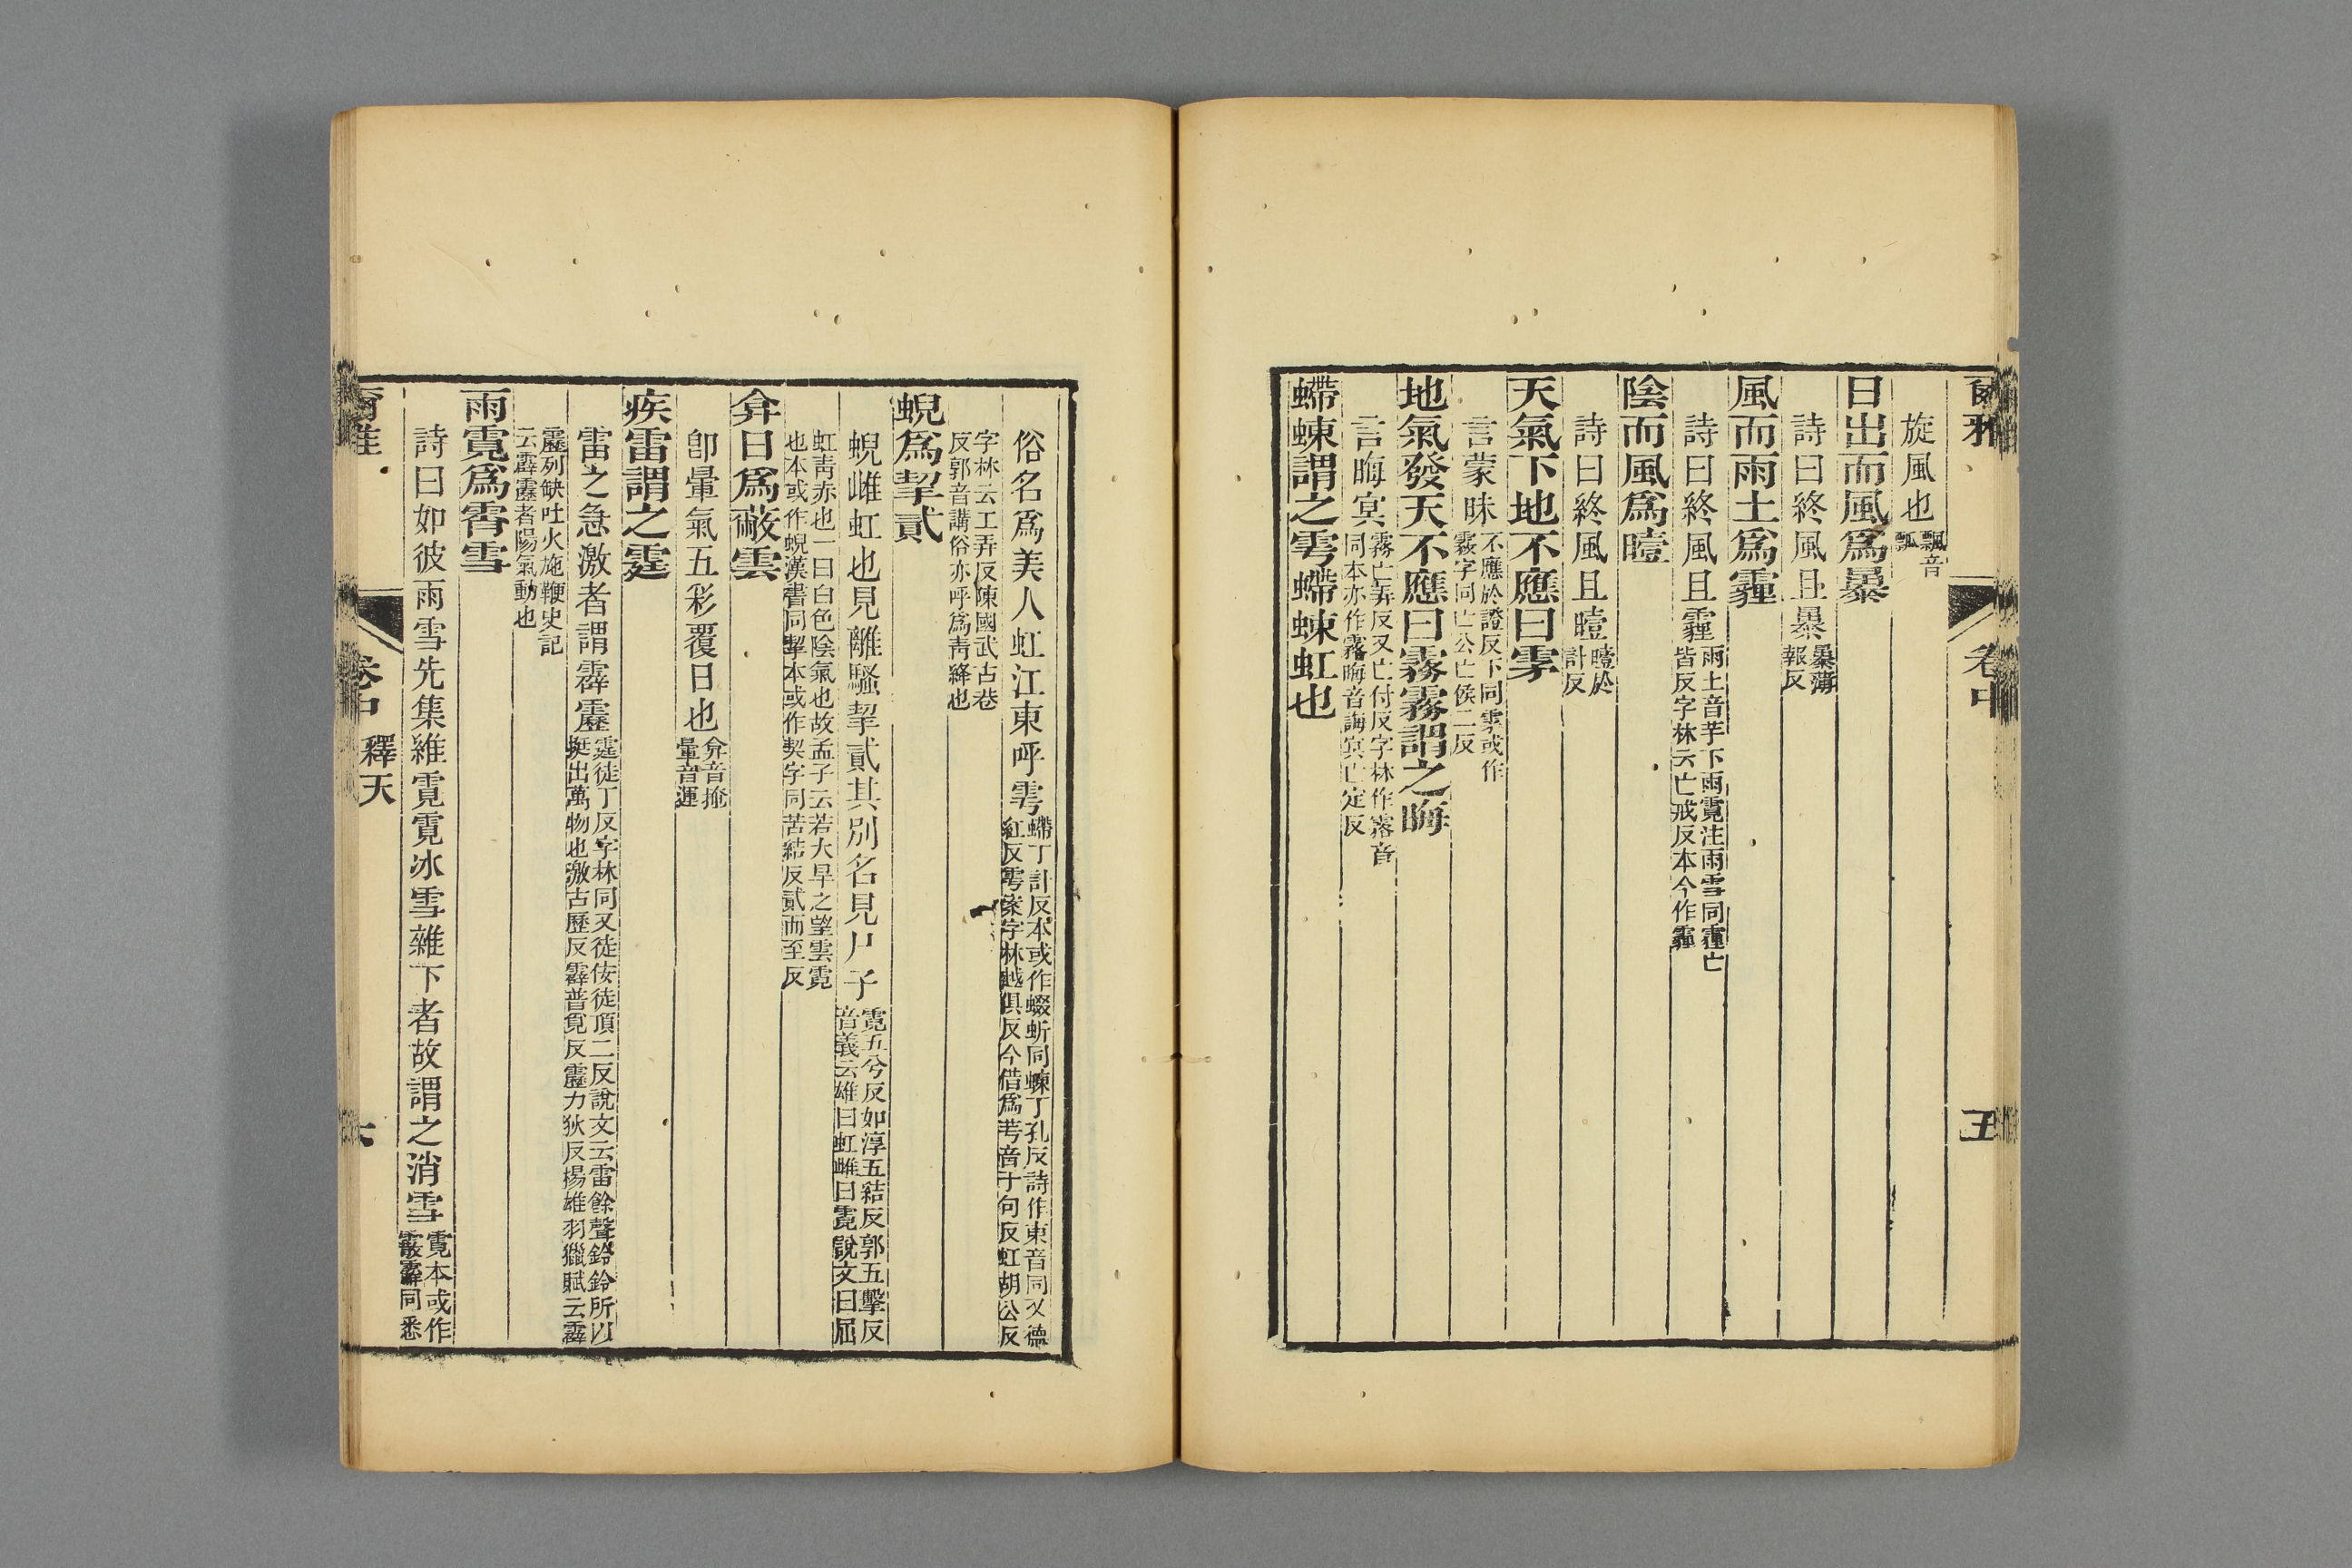 爾雅 卷中 五
旋風也飄音瓢
日出而風爲暴
詩曰終風且暴暴薄報反
風而雨土爲霾
詩曰終風且霾雨土音芋下雨霓注雨雪同霾亡皆反字林云亡戒反本今作霾
陰而風爲曀
詩曰終風且曀曀於計反
天氣下地不應曰雺
言蒙昧不應於證反下同雺或作霚字同亡公亡侯二反
地氣發天不應曰霧霧謂之晦
言晦冥霧亡弄反又亡付反字林作霚音同本亦作霿晦音誨冥亡定反
螮蝀謂之雩螮蝀虹也
俗名爲美人虹江東呼雩螮丁計反本或作蝃蚚同蝀丁孔反詩作東音同又德紅反雩字林越俱反今借爲芌音于句反虹胡公反
字林云工弄反陳國武古巷反郭音講俗亦呼爲青絳也
蜺爲挈貳
蜺雌虹也見離騷挈貳其別名見尸子霓五兮反如淳五結反郭五擊反音義云雄曰虹雌曰霓說文曰屈
虹青赤也一曰白色陰氣也故孟子云若大旱之望雲霓也本或作蜺漢書同挈本或作契字同苦結反貳而至反
弇日爲蔽雲
卽暈氣五彩覆日也弇音揜暈音運
疾雷謂之霆
雷之急激者謂霹靂霆徒丁反字林同又徒佞徒頂二反說文云雷餘聲鈴鈴所以挺出萬物也激古歷反霹普覓反靂力狄反揚雄羽獵賦云霹
靂列缺吐火施鞭史記云霹靂者陽氣動也
雨霓爲霄雪
詩曰如彼雨雪先集維霓霓冰雪雜下者故謂之消雪霓本或作霰䨘同悉
爾雅 卷中 釋天 六